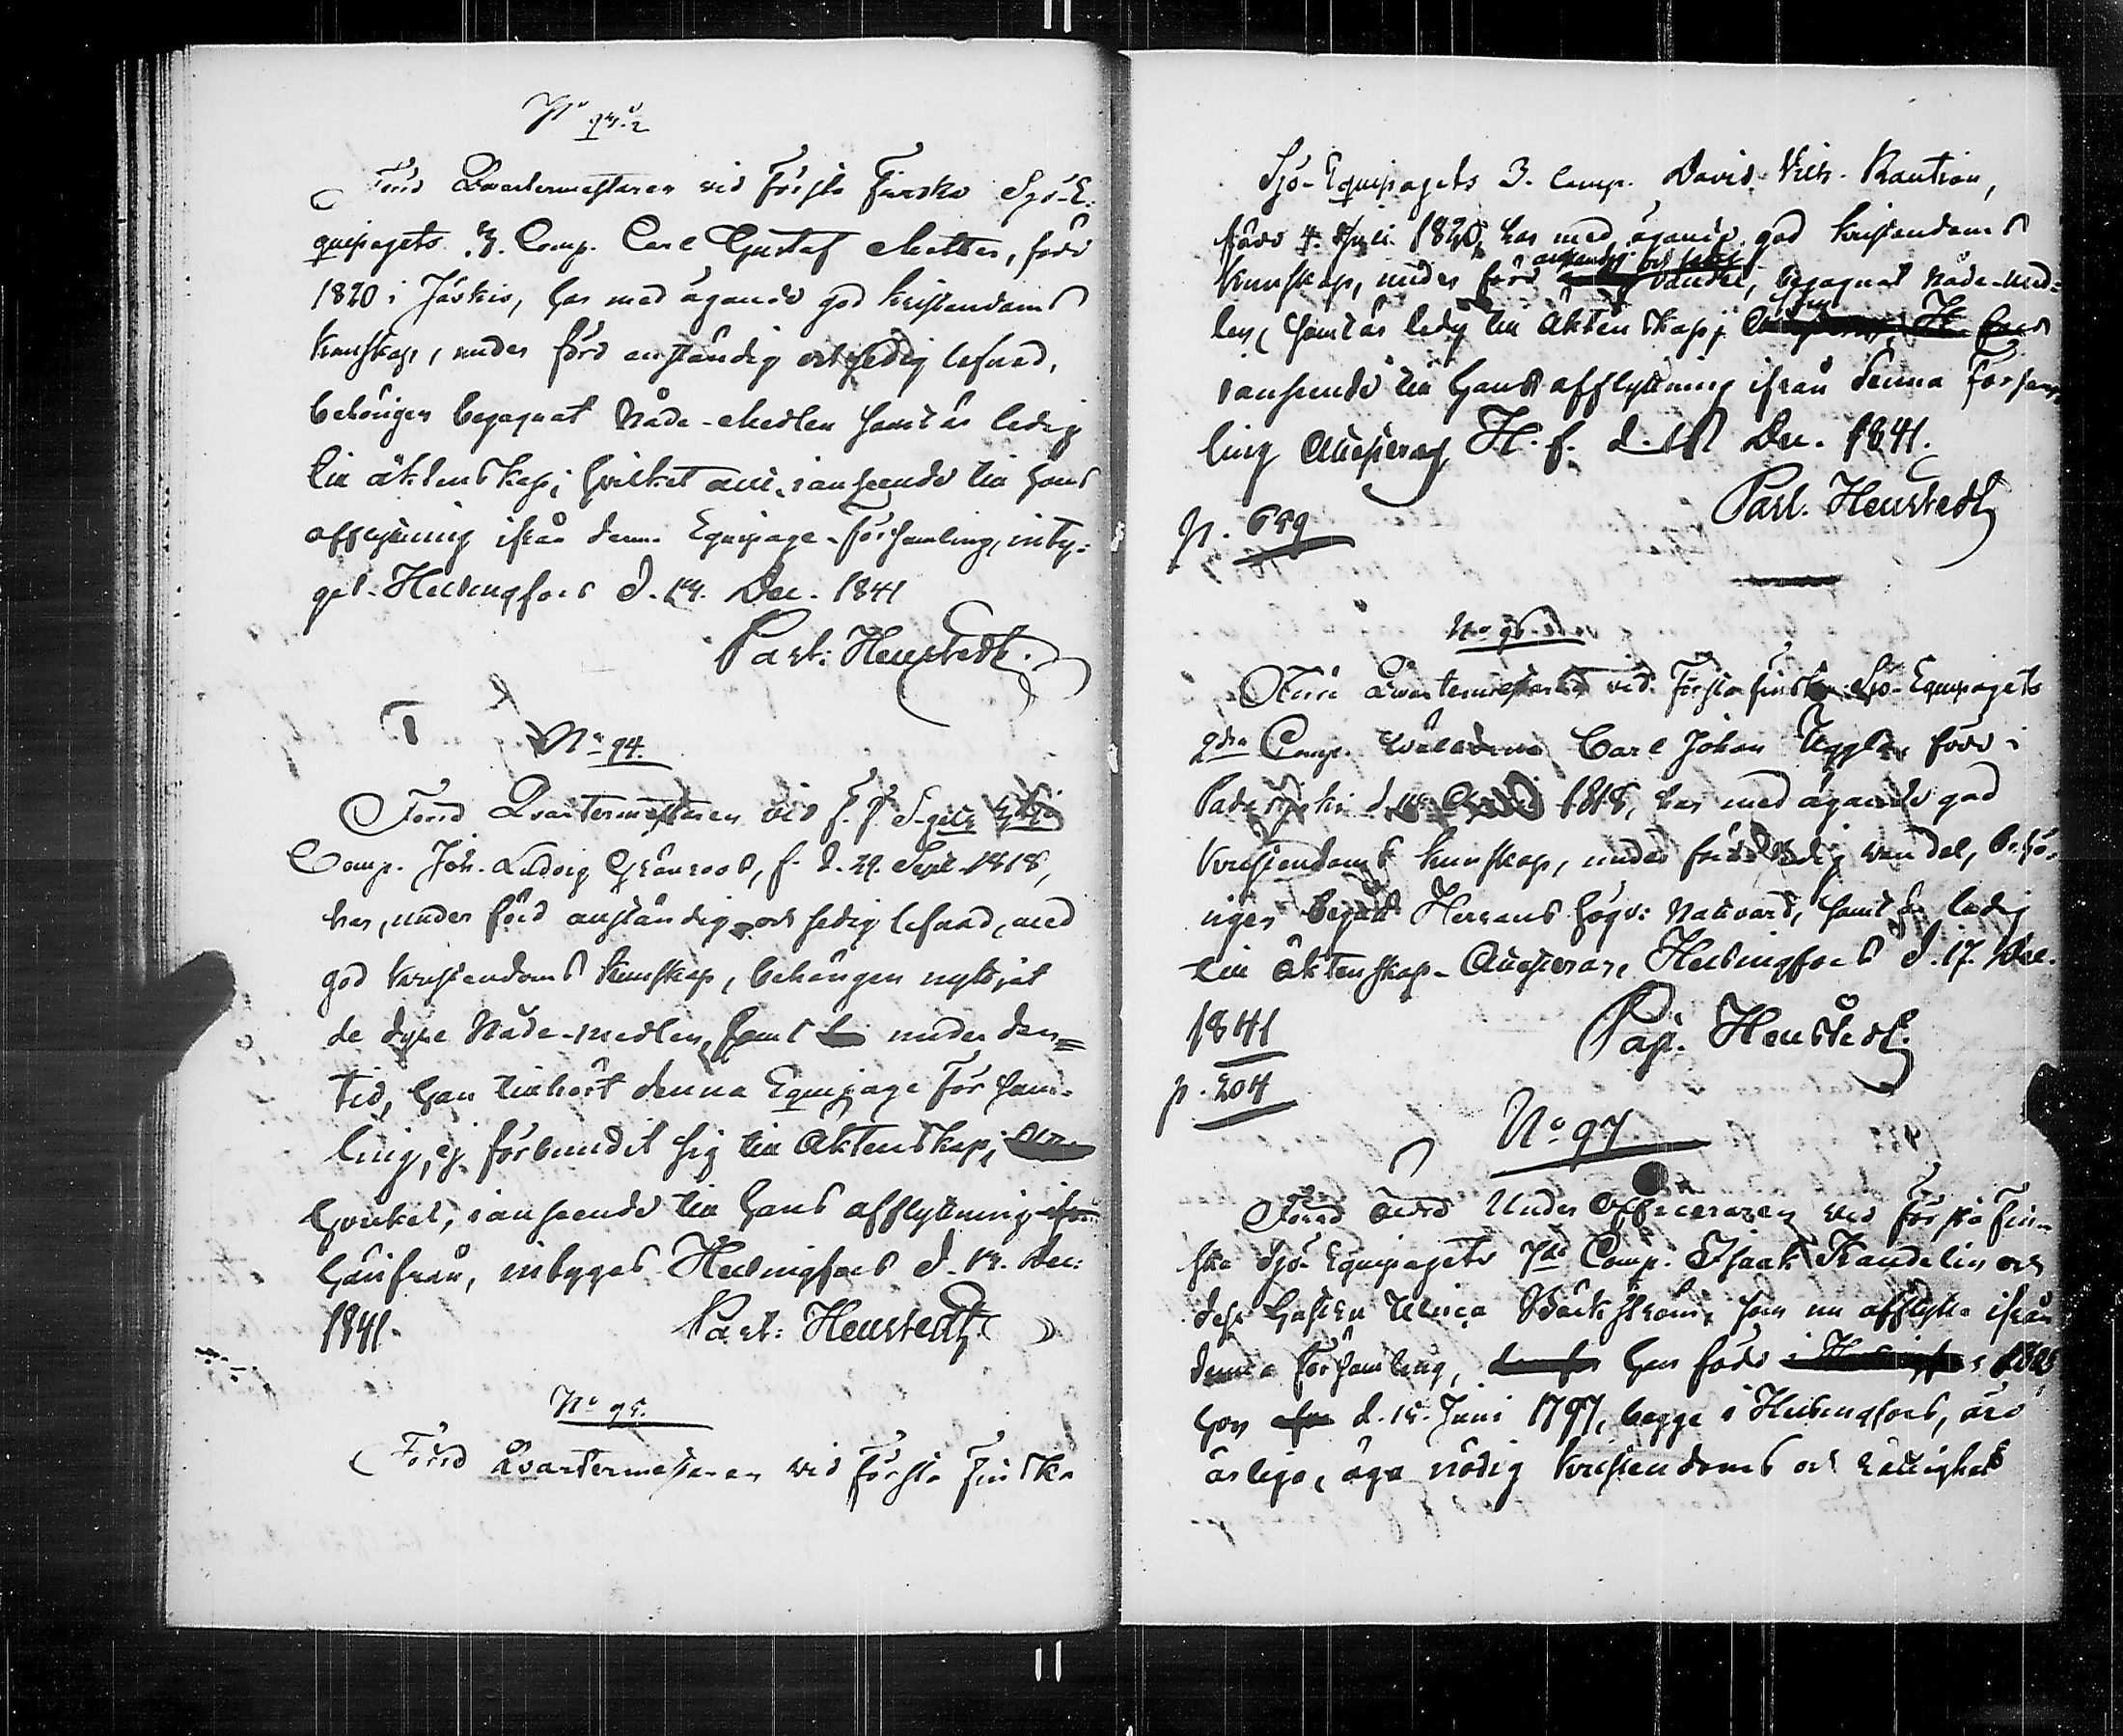 No 93.
Förre Qvartermästaren vid Första Finska Sjö-E-
quipagets 3. Comp. Carl Gustaf Mether, född
1820 i Jäskis, har med ägande god kristendoms
kunskap, under förd anständig och sedig lefnad,
behörigen begagnat Nåde-Medlen samt är ledig
till äktenskap; hvilket allt, i anseende till hans
afflyttning ifrån denna Equipage-Församling, inty-
gas. Helsingfors d. 14. Dec. 1841
Past: Heurstedt.
No 94.
Förre Qvartermästaren vid F. F. S-
Comp. Joh. Ludvig Grönroos, f. d. 29. Sept. 1818,
har, under förd anständig och sedig lefnad, med
god kristendoms kunskap, behörigen nyttjat
de dyre Nåde-medlen, samt under den
tid, han tillhört denna Equipage Försam-
ling, ej förbundit sig till Äktenskap;
Hvilket, i anseende till hans afflyttning
härifrån, intygas Helsingfors d. 14. Dec:
1841.
Past: Heurstedt
No 95.
Förre Qvartermästaren vid första Finska
Sjö-Equipagets 3. Comp. David Kantion,
född 4. Juli 1820, har med ägande god kristendoms
anständig och sedig
kunskap, under förd vandel, begagnat Nåde-med-
len, samt är ledig till Äktenskap;
i anseende till hans afflyttning ifrån denna Försam-
ling Attesteras H. f. d. 15 Dec. 1841.
Past. Heurstedt
p. 659
No 96.
Förre Qvartermästaren vid första finska Sjö-Equipagets
2dra Comp. Carl Johan Uggla, född i
Padasjoki d. 1818, har med ägande god
kristendoms kunskap, under förd sedig vandel, behö-
rigen begått Herrans Högv: Nattvard, samt är ledig
till äktenskap. Attesteras, Helsingfors d. 17. Dec.
1841
Past. Heurstedt.
p. 204
No 97
Förre Under Officeraren vid första Fin-
ska Sjö-Equipagets 7de Comp. Isaak Kandelin och
dess hustru Ulrica Bäckström, som nu afflytta ifrån
denna Församling, han född i
hon d. 15. Juni 1797, begge i Helsingfors, äro
ärliga, äga nödig kristendoms och